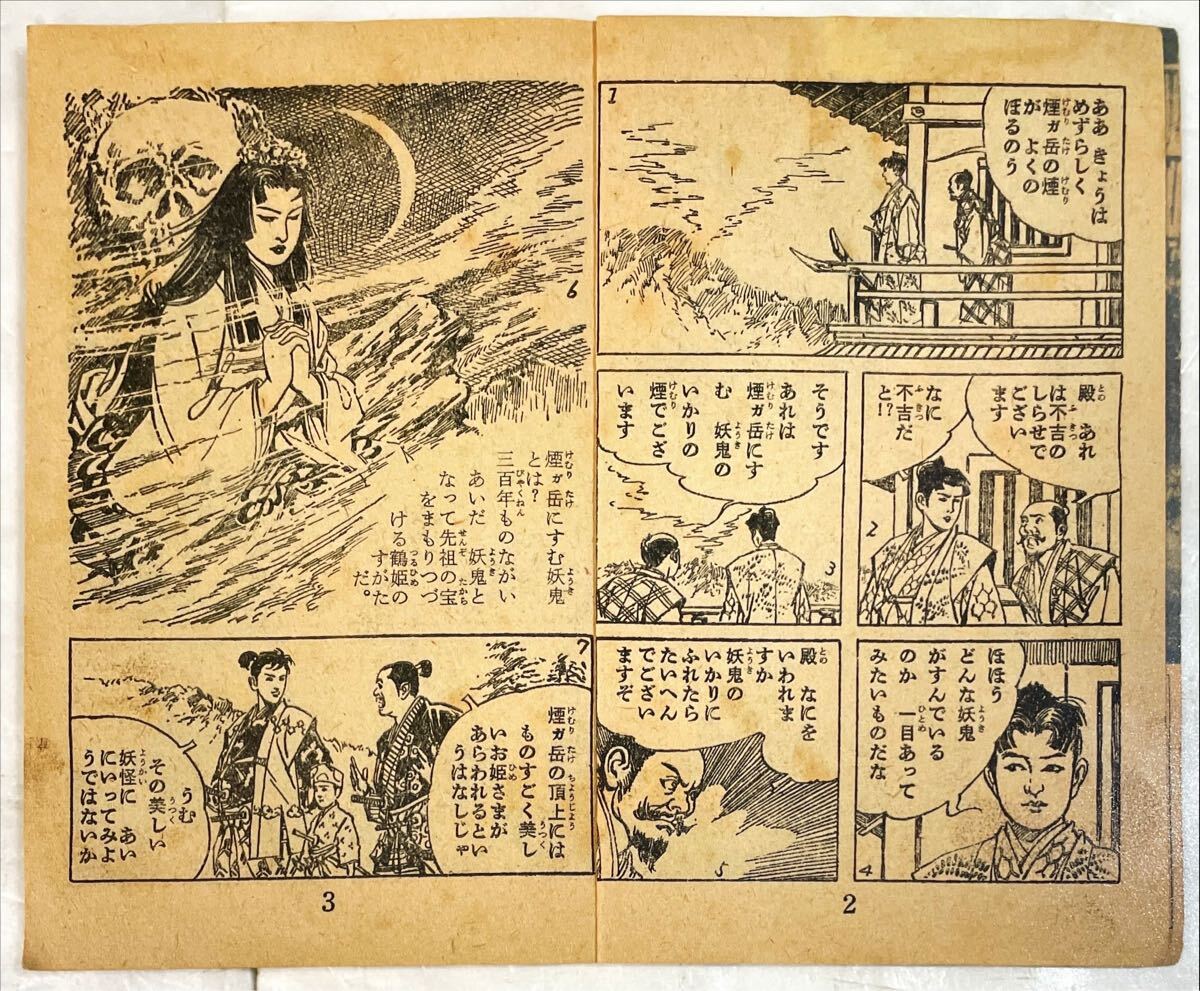 1
ああ きょうは
めずらしく
煙ガ岳の煙
が よくの
ぼるのう
殿 あれ
は不吉の
しらせで
ござい
ます
なに
不吉だ
と!?
2
そうです
あれは
煙ガ岳にす
む 妖鬼の
いかりの
煙でござ
います
3
ほほう
どんな妖鬼
がすんでいる
のか 一目あって
みたいものだな
4
殿 なにを
いわれま
すか
妖鬼の
いかりに
ふれたら
たいへん
でござい
ますぞ
5
2
6
煙ガ岳にすむ妖鬼
とは?
三百年ものながい
あいだ 妖鬼と
なって先祖の宝
をまもりつづ
ける鶴姫の
すがた
だ。
7
煙ガ岳の頂上には
ものすごく美し
いお姫さまが
あらわれるとい
うはなしじゃ
うむ
その美しい
妖怪に あい
にいってみよ
うではないか
3